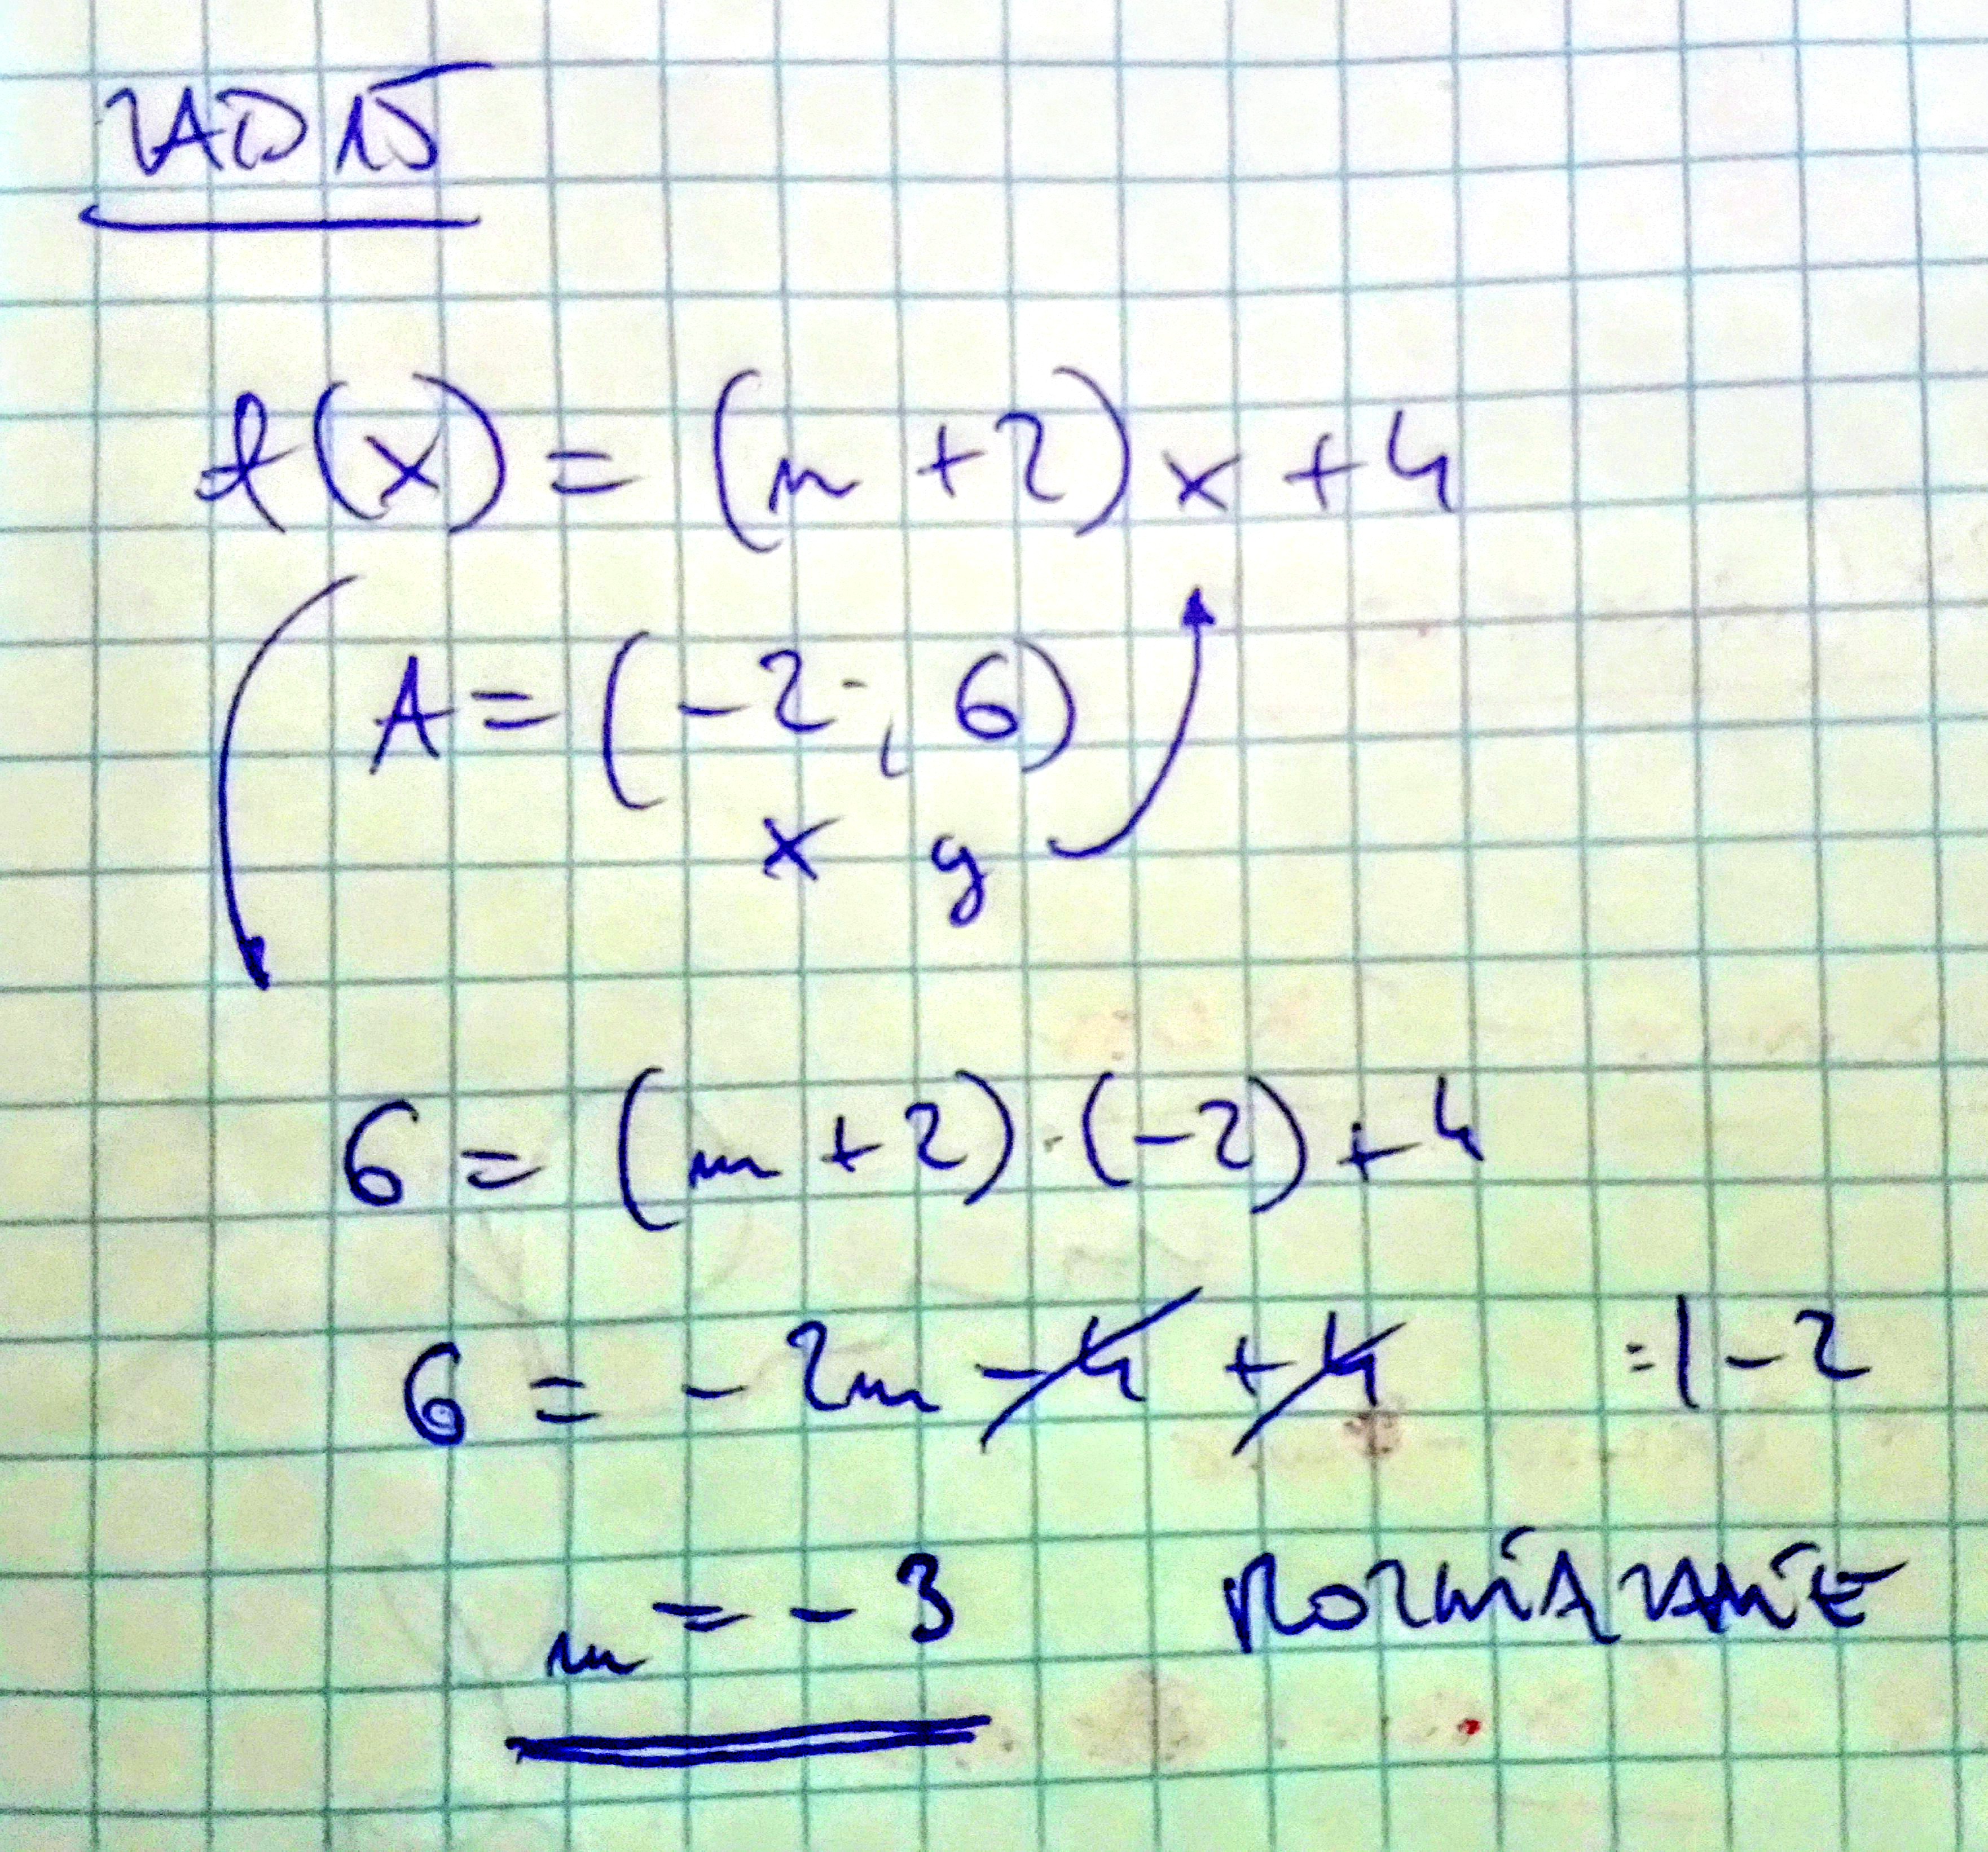 ZAD 15
f(x) = (m + 2) x + 4
A = (-2, 6)
x y
6 = (m + 2) · (-2) + 4
6 = - 2m - 4 + 4 :|-2
m = - 3 ROZWIĄZANIE